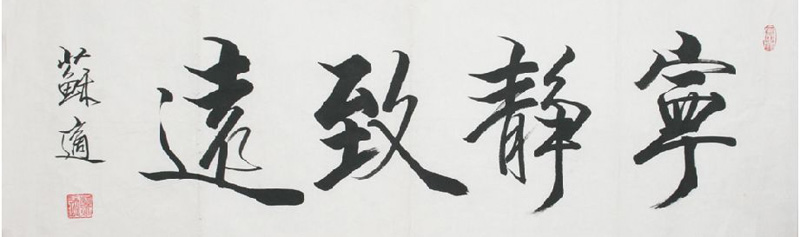 寧靜致遠
蘇適